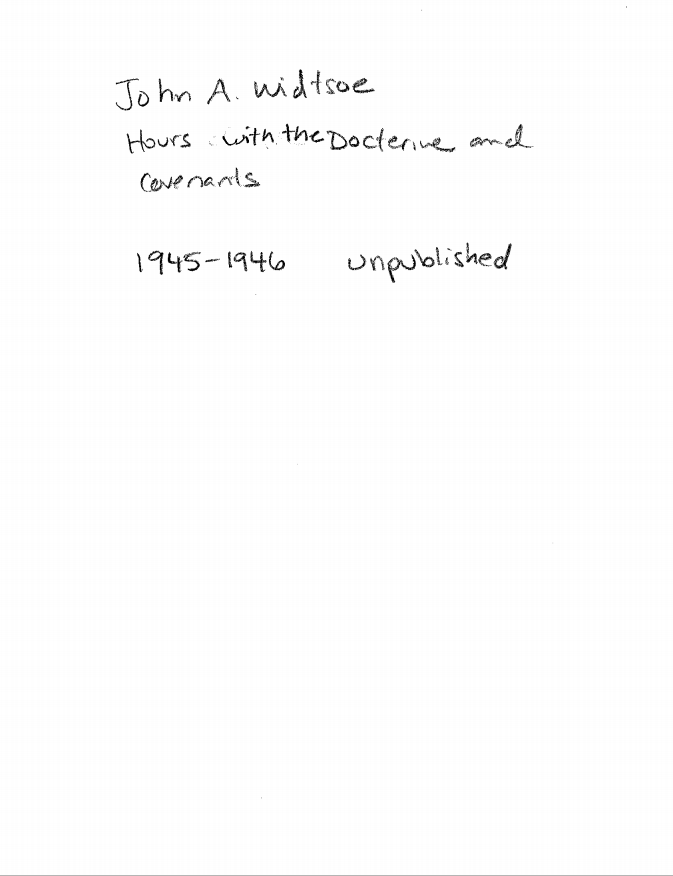 John A. Widtsoe
Hours with the Docterine and
Covenants
1945-1946 unpublished